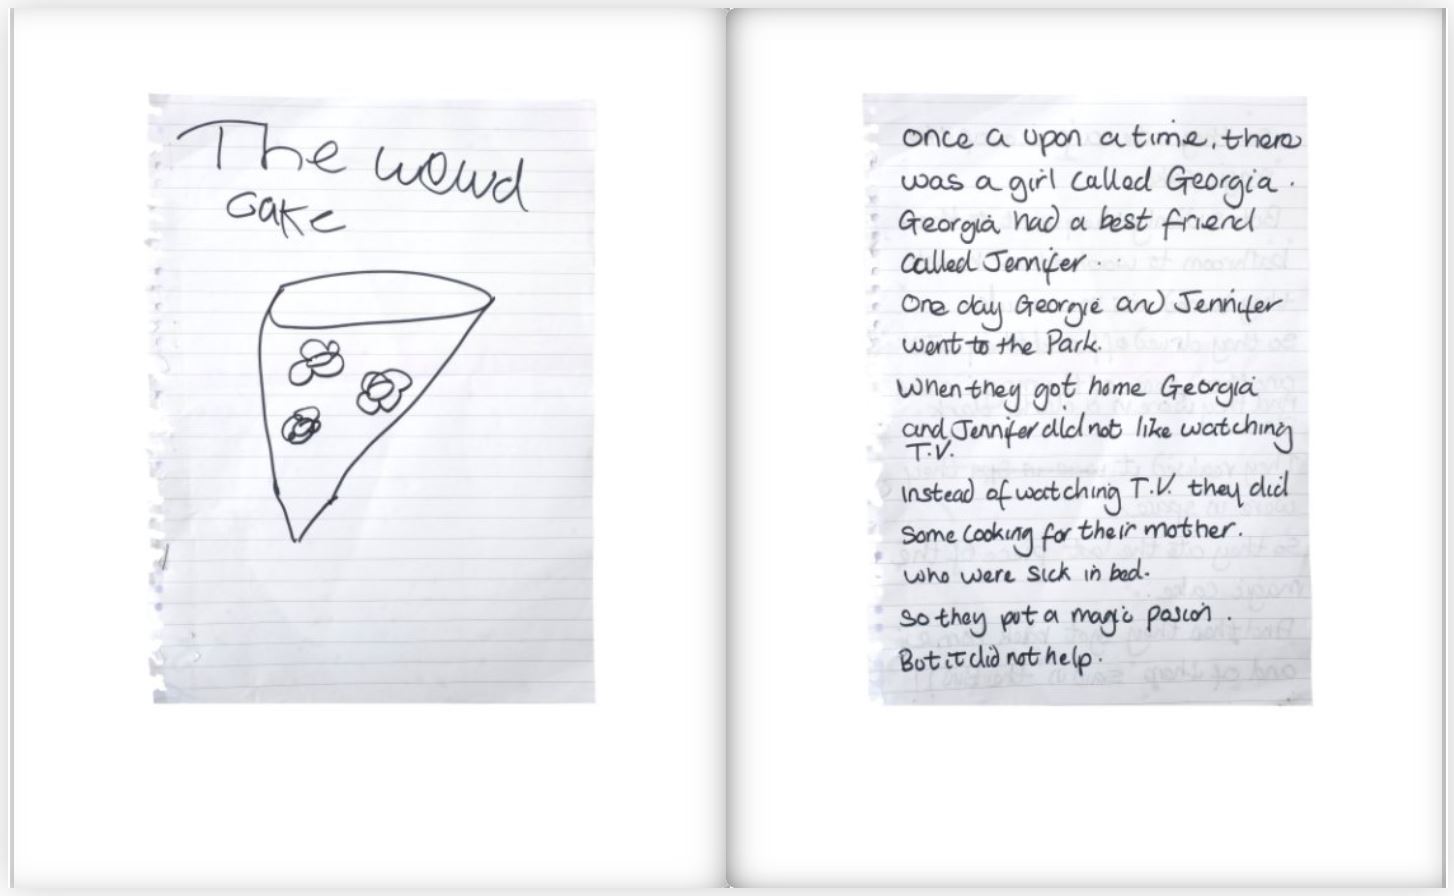 The wowd
cake
once a upon a time, there
was a girl called Georgia.
Georgia had a best friend
called Jennifer..
One day Georgie and Jennifer
went to the Park.
When they got home Georgia
and Jennifer did not like watching
T.V.
instead of watching T.V. they did
some cooking for their mother.
who were sick in bed.
so they put a magic pasion.
But it did not help.